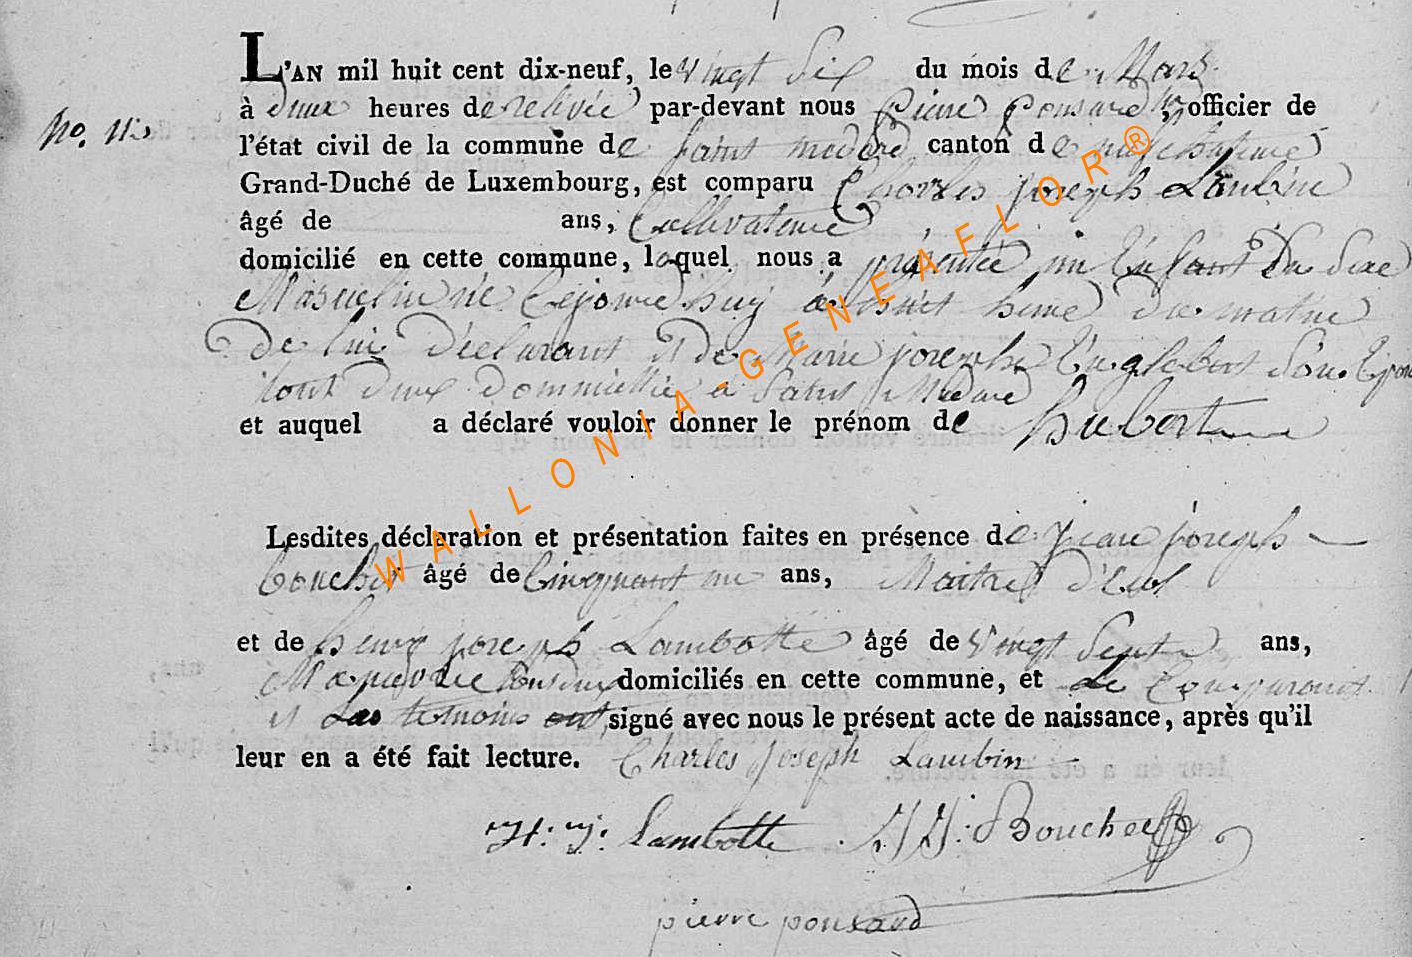 L'AN mil huit cent dix-neuf, le vingt Six du mois de Mars
No. 11 à deux heures de relevée par-devant nous Pierre Ponsard officier de
l'état civil de la commune de Saint medard canton de neufchateau
Grand-Duché de Luxembourg, est comparu Charles joseph Lambin
âgé de ans, Cultivateur
domicilié en cette commune, laquel nous a présentée un Enfant Du Sexe
Masculin né Cejourdhuy à huit heure du matin
De lui Déclarant et De Marie josephe Englebert Son Epouse
tout deux Domicillié a Saint Medard
et auquel a déclaré vouloir donner le prénom de hubert
Lesdites déclaration et présentation faites en présence de jean joseph
bouchet âgé de Cinquant un ans, Maitre D'Ecol
et de henry joseph Lambotte âgé de Vingt Sept ans,
domiciliés en cette commune, et Le Comparant
et Les temoins ont signé avec nous le présent acte de naissance, après qu'il
leur en a été fait lecture. Charles joseph Lambin
H: j: Lambotte J J: Bouchet
pierre ponsard
WALLONIA-GENEAFLOR®